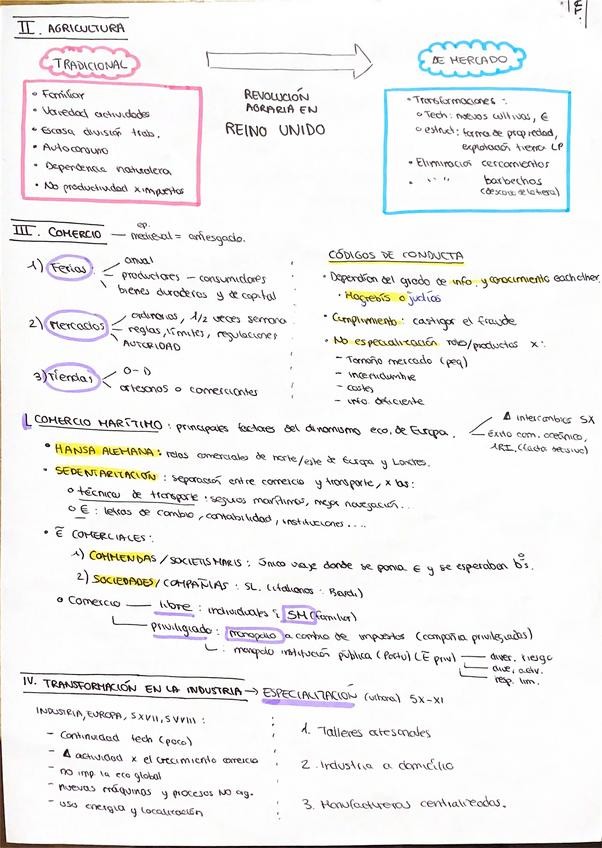 II. AGRICULTURA
TRADICIONAL
• Familiar
• Variedad actividades
• Escasa división trab.
• Autoconsumo
• Dependencia naturaleza
• No productividad x impuestos
REVOLUCIÓN
AGRARIA EN
REINO UNIDO
DE MERCADO
• Transformaciones :
• Tech: nuevos cultivos, €
• estruct: forma de propiedad,
explotación tierra LP
• Eliminación cercamientos
• " " barbechos
(descanso de la tierra)
III. COMERCIO — ep. medieval = arriesgado.
1) Ferias
anual
productores - consumidores
bienes duraderos y de capital
2) Mercados
ordinarios, 1/2 veces semana
reglas, límites, regulaciones
AUTORIDAD
3) Tiendas
O-D
artesanos o comerciantes
CÓDIGOS DE CONDUCTA
• Dependían del grado de info. y conocimiento each other.
• Magrebís o judíos
• Cumplimiento: castigar el fraude
• No especialización roles/productos x:
- Tamaño mercado (peq)
- incertidumbre
- costes
- info. deficiente
COMERCIO MARÍTIMO : principales factores del dinamismo eco. de Europa.
Δ intercambios SX
éxito com. oceánico,
1RI, (facto decisivo)
• HANSA ALEMANA: rolas comerciales de norte/este de Europa y Londres.
• SEDENTARIZACIÓN : separación entre comercio y transporte, x las:
• técnicas de transporte: seguros marítimos, mejor navegación...
• €: letras de cambio, contabilidad, instituciones....
• Ē COMERCIALES:
1) COMMENDAS/SOCIETIS MARIS: único viaje donde se ponía € y se esperaban bºs.
2) SOCIEDADES/COMPAÑÍAS : SL. (italianos: Bardi)
• Comercio — libre : individuales ; SM (familiar)
priviligiado : monopolio a cambio de impuestos (compañía privilegiadas)
: monopolio institución pública (Portu) (Ē priv)
diver. riesgo
dive. activ.
resp. lim.
IV. TRANSFORMACIÓN EN LA INDUSTRIA → ESPECIALIZACIÓN (urbana) SX-XI
INDUSTRIA, EUROPA, SXVII, SXVIII :
- Continuidad tech (poco)
- Δ actividad x el crecimiento comercio
- no imp. la eco global
- nuevas máquinas y procesos NO org.
- uso energía y localización
1. Talleres artesanales
2. Industria a domicilio
3. Manufactureras centralizadas.